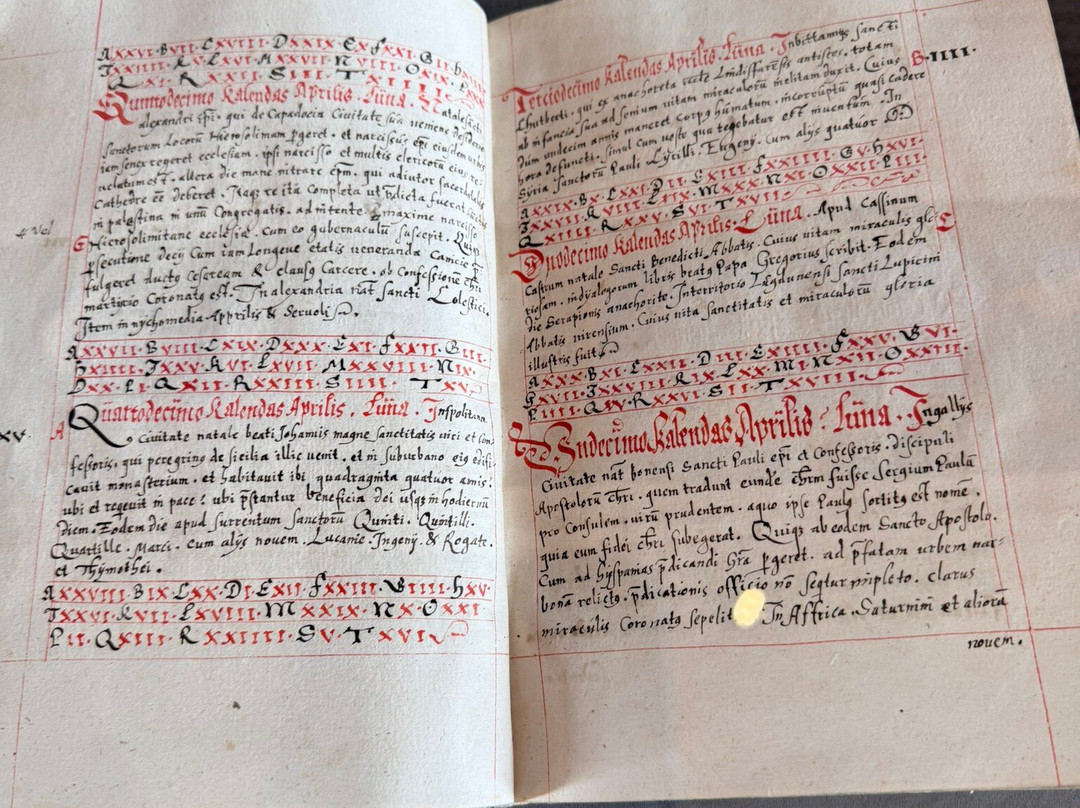 A XXVI · B VII · C XVIII · D XXIX · E X · F XXI · G II · H
I XXIIII · K V · L XVI · M XXVII · N VIII · O XIX
Q I · R XXII · S III · T XIIII
Quintodecimo Kalendas Aprilis. Luna. Natale sc̃ti
alexandri ep̃i. qui de Capadocia Civitate sua veniens desiderio
sanctorum locorũ Hierosolimam p̱geret. et narcisus ep̃i eiusdem urbis
iam senex regeret ecclesiam. ipsi narcisso et multis clericorũ eius re-
uelatum est. altera die mane intrare ep̃m. qui adiutor sacerdotalis
Cathedre eẽ deberet. Itaq3 re ita completa ut p̃dicta fuerat
in palestina in unũ Congregatis. ad nitente maxime narciso
4 vel
E
Hierosolimitane ecclesiã. Cum eo gubernaculũ suscepit. Quiq3
p̱secutione decij Cum iam longeue etatis veneranda Canicie p̃
fulgeret ductꝰ Cesaream & clausꝰ Carcere. ob Confessionẽ Chr̃i
martirio Coronatꝰ est. In alexandria nat̃ sancti
Item in nychomedia Apprilis & Seruoli.
A XXVII · B VIII · C XIX · D XXX · E XI · F XXII · G III ·
H XIIII · I XXV · K VI · L XVII · M XXVIII · N IX ·
O XX · P I · Q XII · R XXIII · S IIII · T XV
XV.
A
Quartodecimo Kalendas Aprilis. Luna. In spolitana
Civitate natale beati Johannis magne sanctitatis viri et con-
fessoris. qui peregrinꝰ de Sicilia illic venit. et in suburbano eiꝰ edifi-
cavit monasterium. et habitauit ibi quadraginta quatuor annis.
ubi et requit in pace. ubi p̃stantur beneficia dei usq3 in hodiernũ
diem. Eodem die apud Surrentum sanctorũ Quinti. Quintilli.
Quartille. Marci. Cum alijs novem. Lucanie. Ingenij. & Rogate.
et Thymothei.
A XXVIII · B IX · C XX · D I · E XII · F XXIII · G IIII · H XV
I XXVI · K VII · L XVIII · M XXIX · N X · O XXI
P II · Q XIII · R XXIIII · S V · T XVI
Terciodecimo Kalendas Aprilis. Luna. In brittannijs sancti
B · IIII.
Chutberti. qui ex anachoreta ecc̃te Lindisfarensis antistes. totam
ab infancia sua ad senium vitam miraculorũ inclitam duxit. Cuius
dum undecim annis maneret Corpꝰ humatum. incorruptũ quasi eadem
hora defuncti. simul cum veste qua tegebatur est inuentum. In
Syria sanctorũ Pauli. Cyrilli. Eugenij. cum alijs quatuor
A XXIX · B X · C XXI · D II · E XIII · F XXIIII · G V · H XVI ·
I XXVII · K VIII · L XIX · M XXX · N XI · O XXII · P III ·
Q XIIII · R XXV · S VI · T XVII
Duodecimo Kalendas Aprilis. Luna. Apud Cassinum
C
Castrum natale Sancti Benedicti Abbatis. Cuius vitam miraculis glo-
riosam. in dyalogorum libris beatꝰ Papa Gregorius scribit. Eodem
die Serapionis anachorite. Interritorio Lugdunensi Sancti Lupicini
Abbatis nirensium. Cuius vita sanctitatis et miraculorũ gloria
illustris fuit.
A XXX · B XI · C XXII · D III · E XIIII · F XXV · G VI ·
H XVII · I XXVIII · K IX · L XX · M I · N XII · O XXIII ·
P IIII · Q XV · R XXVI · S VII · T XVIII
Undecimo Kalendas Aprilis. Luna. In gallijs
Civitate nat̃ bonensi Sancti Pauli ep̃i et Confessoris. discipuli
Apostolorũ Chr̃i. quem tradunt eundẽ chr̃m fuisse Sergium Paulũ
pro Consulem. virũ prudentem. a quo ipse Paulꝰ sortitꝰ est nomẽ.
quia eum fidei chr̃i subegerat. Quiq3 ab eodem Sancto Apostolo.
Cum ad hyspanias p̃dicandi gr̃a p̱geret. ad p̃fatam urbem nar-
bonã relictꝰ. p̃dicationis officio nõ segniter impleto. clarus
miraculis Coronatꝰ sepelit In Affrica. Saturnini et aliorũ
novem.